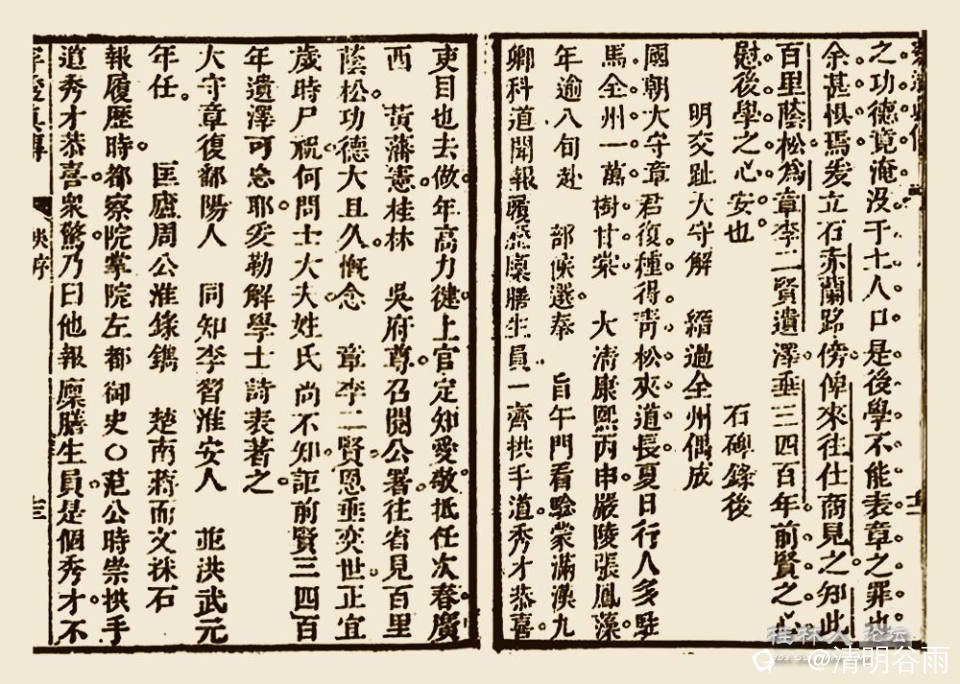 之功德竟淹沒于土人口是後學不能表章之罪也
余甚惧焉爰立石赤蘭路傍俾來往仕商見之知此
百里蔭松為章李二賢遺澤垂三四百年前賢之心
慰後學之心安也
石碑錄後
明交趾大守解縉過全州偶成
國朝大守章君復種得靑松夾道長夏日行人多駐
馬全州一萬樹甘棠 大淸康熙丙申嚴陵張鳳藻
年逾八旬赴 部候選奉 旨午門看驗蒙滿漢九
卿科道聞報履歷廪膳生員一齊拱手道秀才恭喜
吏目也去做年高力健上官定知愛敬抵任次春廣
西 黃藩憲桂林 吳府尊召閱公署往省見百里
蔭松功德大且久慨念 章李二賢恩垂奕世正宜
歲時尸祝何問士大夫姓氏尚不知詎前賢三四百
年遺澤可忘耶爰勒解學士詩表著之
大守章復鄱陽人 同知李習淮安人 並洪武元
年任 匡廬周公淮錄鐫 楚南蔣而文袾石
報履歷時都察院掌院左都御史〇范公時崇拱手
道秀才恭喜衆驚乃曰他報廪膳生員是個秀才不
桂林人论坛
@清明谷雨